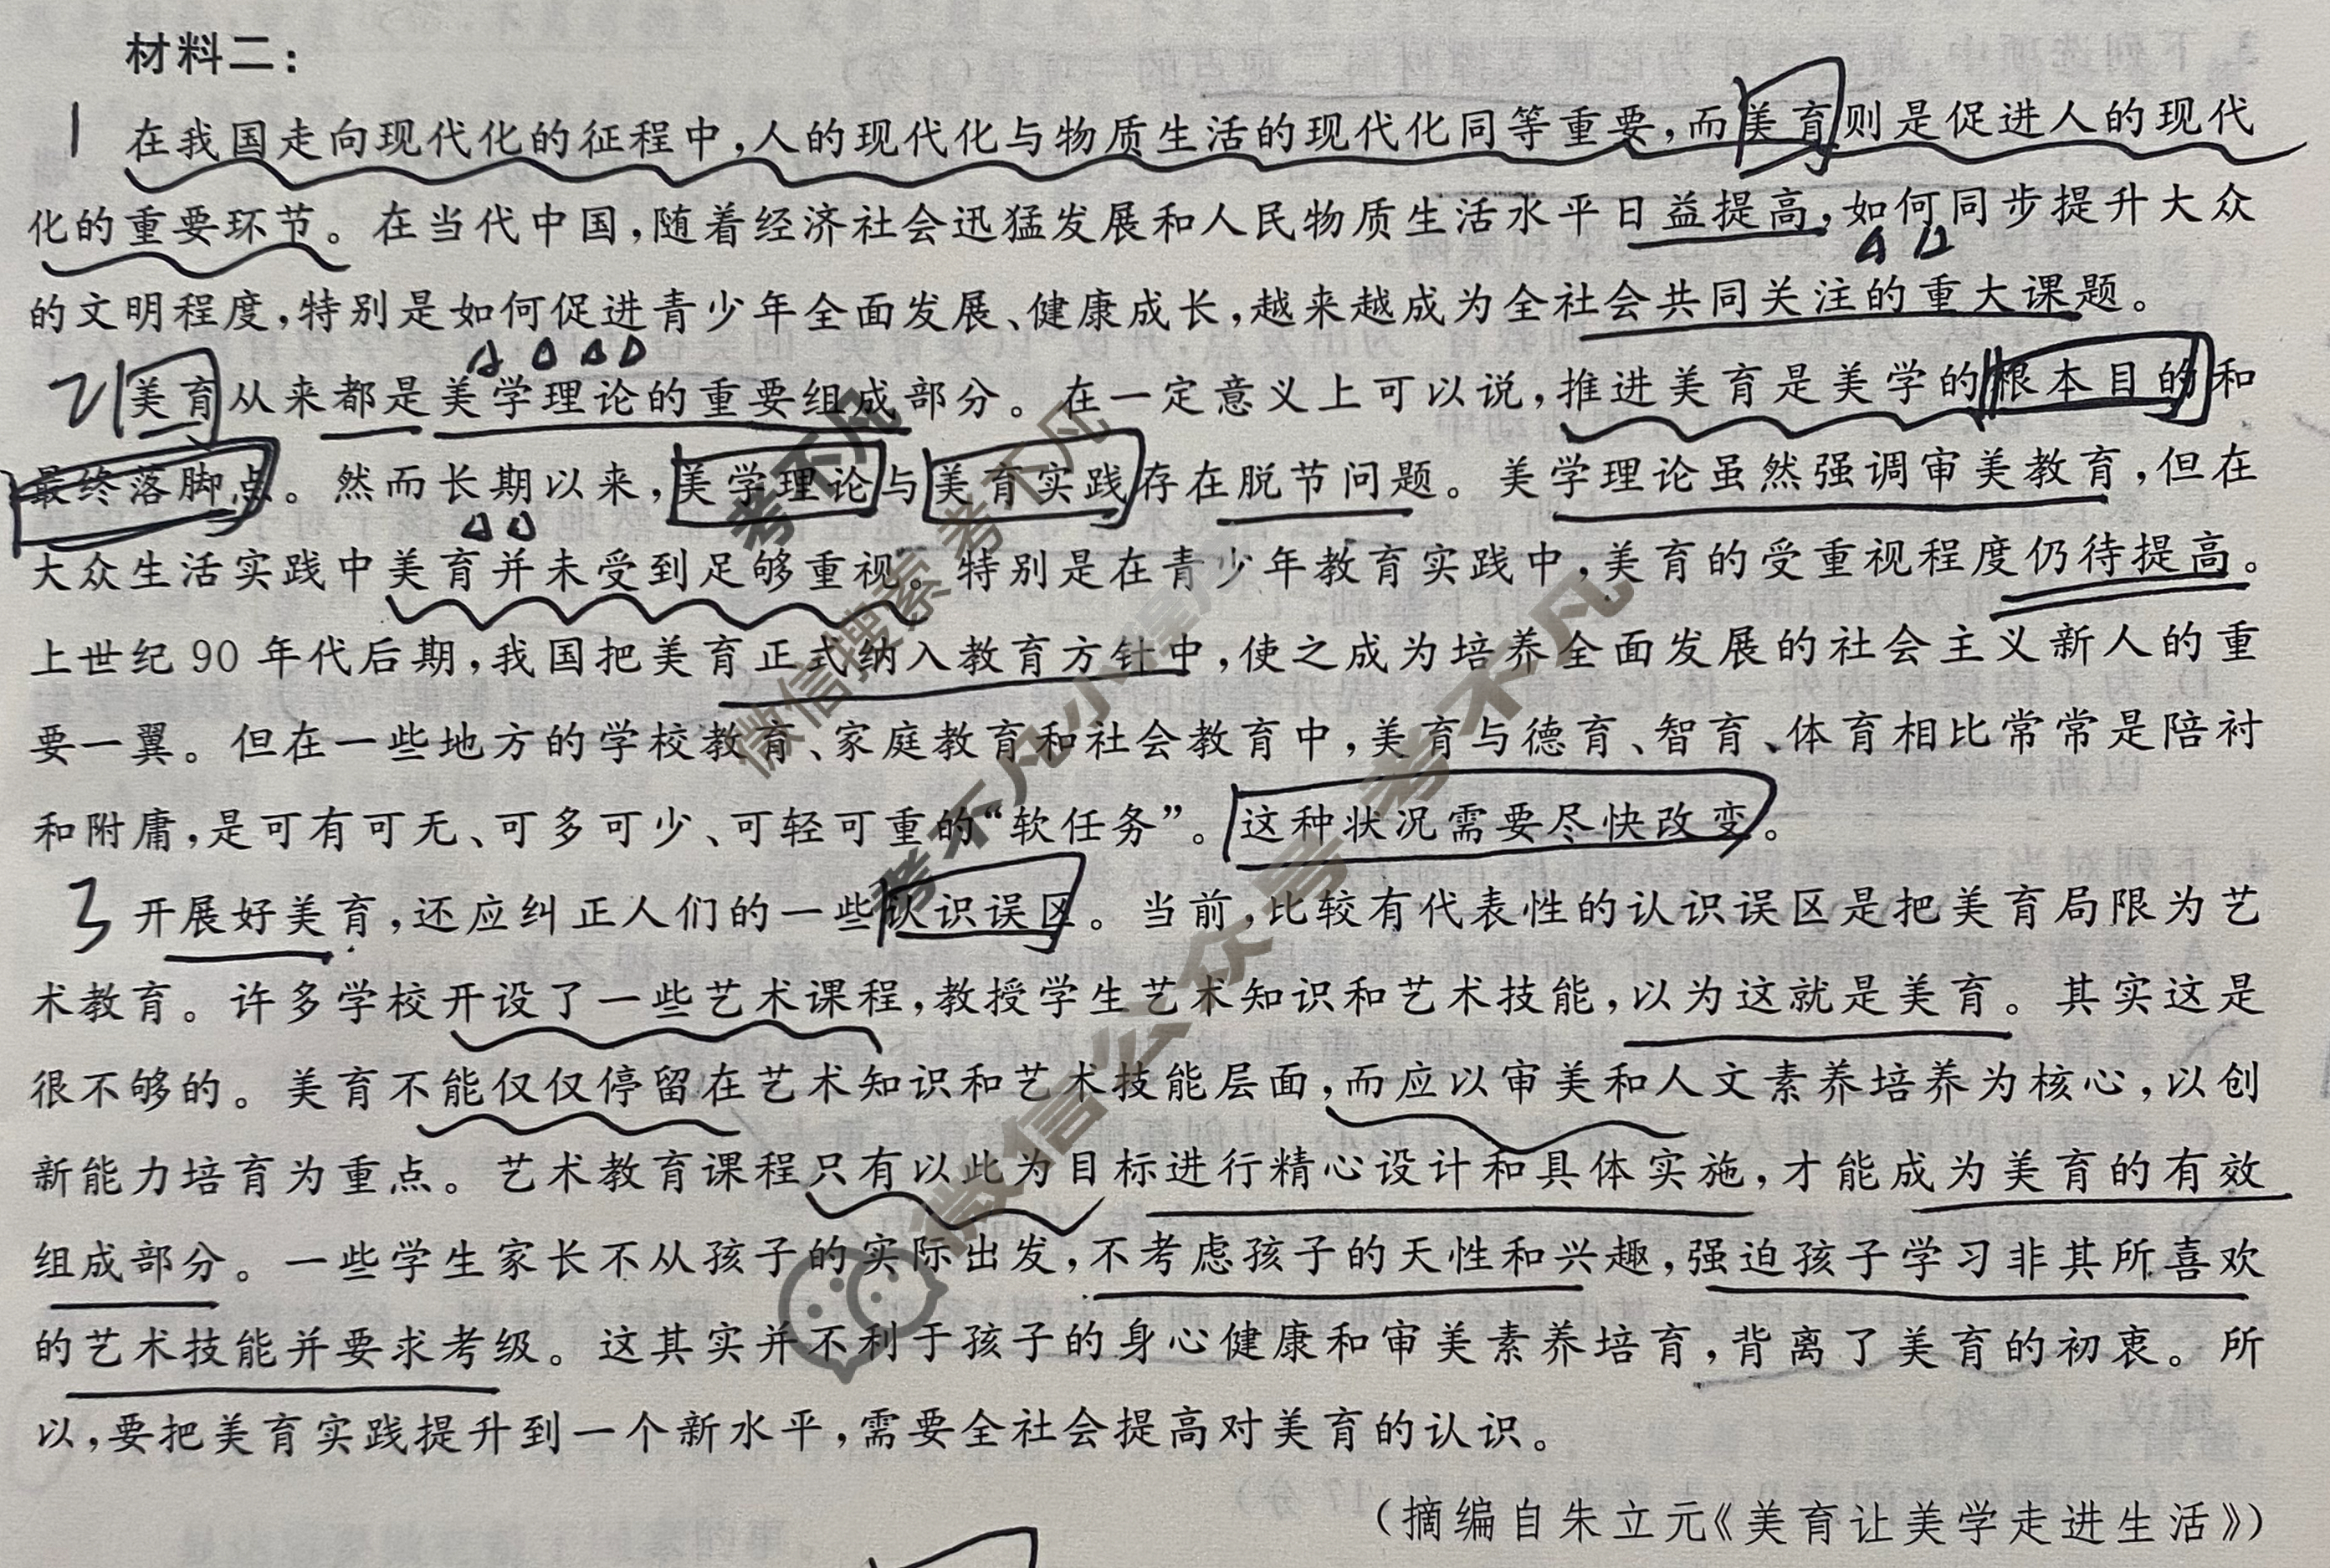 材料二：
1 在我国走向现代化的征程中，人的现代化与物质生活的现代化同等重要，而美育则是促进人的现代
化的重要环节。在当代中国，随着经济社会迅猛发展和人民物质生活水平日益提高，如何同步提升大众
的文明程度，特别是如何促进青少年全面发展、健康成长，越来越成为全社会共同关注的重大课题。
2 美育从来都是美学理论的重要组成部分。在一定意义上可以说，推进美育是美学的根本目的和
最终落脚点。然而长期以来，美学理论与美育实践存在脱节问题。美学理论虽然强调审美教育，但在
大众生活实践中美育并未受到足够重视。特别是在青少年教育实践中，美育的受重视程度仍待提高。
上世纪90年代后期，我国把美育正式纳入教育方针中，使之成为培养全面发展的社会主义新人的重
要一翼。但在一些地方的学校教育、家庭教育和社会教育中，美育与德育、智育、体育相比常常是陪衬
和附庸，是可有可无、可多可少、可轻可重的“软任务”。这种状况需要尽快改变。
3 开展好美育，还应纠正人们的一些认识误区。当前，比较有代表性的认识误区是把美育局限为艺
术教育。许多学校开设了一些艺术课程，教授学生艺术知识和艺术技能，以为这就是美育。其实这是
很不够的。美育不能仅仅停留在艺术知识和艺术技能层面，而应以审美和人文素养培养为核心，以创
新能力培育为重点。艺术教育课程只有以此为目标进行精心设计和具体实施，才能成为美育的有效
组成部分。一些学生家长不从孩子的实际出发，不考虑孩子的天性和兴趣，强迫孩子学习非其所喜欢
的艺术技能并要求考级。这其实并不利于孩子的身心健康和审美素养培育，背离了美育的初衷。所
以，要把美育实践提升到一个新水平，需要全社会提高对美育的认识。
（摘编自朱立元《美育让美学走进生活》）
考不凡
微信搜索 考不凡
微信公众号 考不凡